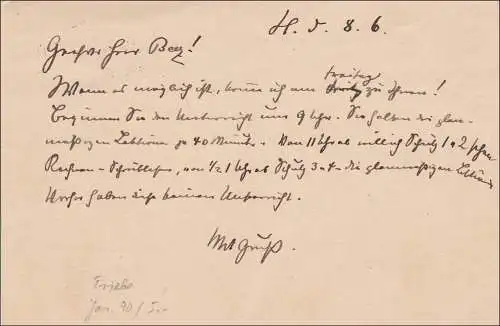 H. d. 8. 6.
Geehrter Herr Betz!
Wenn es möglich ist, komme ich am Freitag zu Ihnen!
Beginnen Sie den Unterricht um 9 Uhr. Sie halten die plan-
mäßigen Lektionen zu 40 Minuten. Von 11 Uhr ab will ich Schulj. 1 + 2 sehen
Rechnen - Schreiblesen, von ½ 1 Uhr ab Schulj. 3 + 4 die planmäßigen Lektionen
Vorher haben diese keinen Unterricht.
Mit Gruß.
Jan. 90 / 5.-